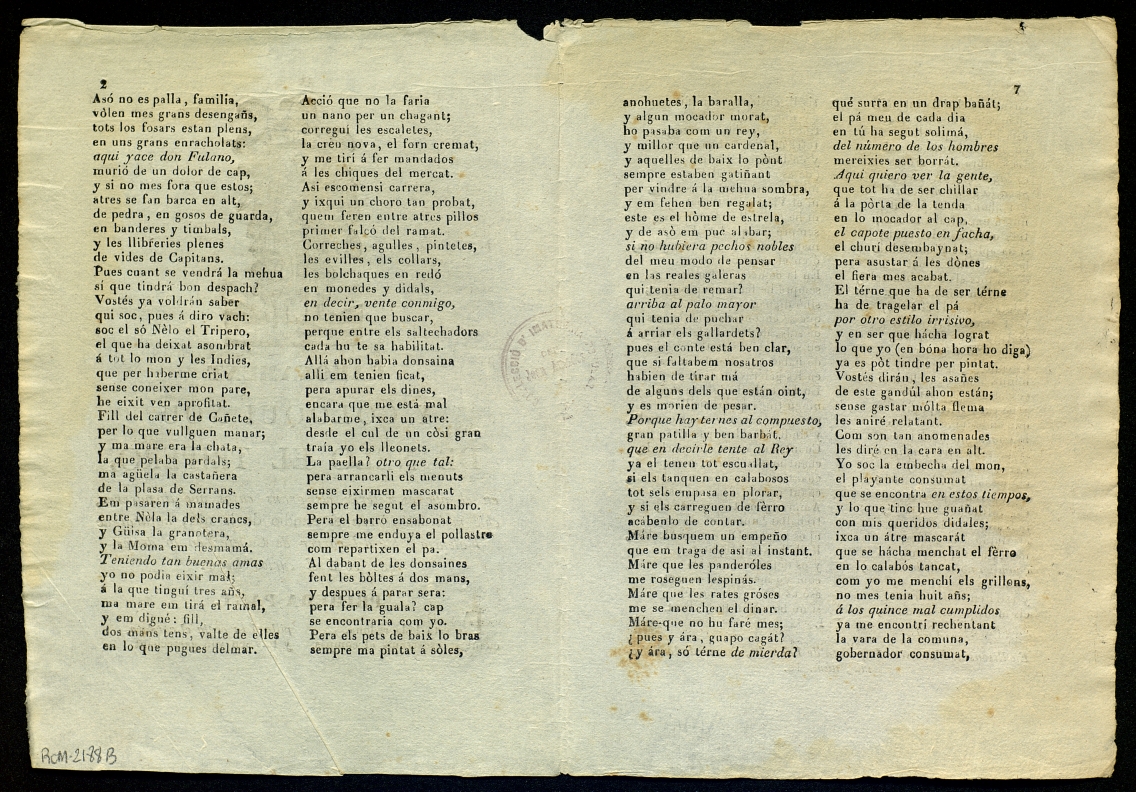 2
Asó no es palla, familia,
vòlen mes grans desengañs,
tots los fosars estan plens,
en uns grans enracholats:
aqui yace don Fulano,
murió de un dolor de cap,
y si no mes fora que estos;
atres se fan barca en alt,
de pedra, en gosos de guarda,
en banderes y timbals,
y les llibreries plenes
de vides de Capitans.
Pues cuant se vendrá la mehua
sí que tindrá bon despach?
Vostés ya voldrán saber
qui soc, pues á diro vach:
soc el só Nèlo el Tripero,
el que ha deixat asombrat
á tot lo mon y les Indies,
que per haberme criat
sense coneixer mon pare,
he eixit ven aprofitat.
Fill del carrer de Cañete,
per lo que vullguen manar;
y ma mare era la chata,
la que pelaba pardals;
ma agüela la castañera
de la plasa de Serrans.
Em pasaren á mamades
entre Nèla la dels crancs,
y Güisa la granotera,
y la Moma em desmamá.
Teniendo tan buenas amas
yo no podia eixir mal;
á la que tinguí tres añs,
ma mare em tirá el ramal,
y em digué: fill,
dos mans tens, valte de elles
en lo que pugues delmar.
Acció que no la faria
un nano per un chagant;
correguí les escaletes,
la creu nova, el forn cremat,
y me tirí á fer mandados
á les chiques del mercat.
Asi escomensi carrera,
y ixqui un choro tan probat,
quem feren entre atres pillos
primer falçó del ramat.
Correches, agulles, pintetes,
les evilles, els collars,
les bolchaques en redó
en monedes y didals,
en decir, vente conmigo,
no tenien que buscar,
perque entre els saltechadors
cada hu te sa habilitat.
Allá ahon habia donsaina
alli em tenien ficat,
pera apurar els dines,
encara que me está mal
alabarme, ixca un atre:
desde el cul de un còsi gran
traía yo els lleonets.
La paella? otro que tal:
pera arrancarli els menuts
sense eixirmen mascarat
sempre he segut el asombro.
Pera el barro ensabonat
sempre me enduya el pollastre
com repartixen el pa.
Al dabant de les donsaines
fent les bòltes á dos mans,
y despues á parar sera:
pera fer la guala? cap
se encontraria com yo.
Pera els pets de baix lo bras
sempre ma pintat á sòles,
7
anohuetes, la baralla,
y algun mocador morat,
ho pasaba com un rey,
y millor que un cardenal,
y aquelles de baix lo pònt
sempre estaben gatiñant
per vindre á la mehua sombra,
y em fehen ben regalat;
este es el hòme de estrela,
y de asò em puc alabar;
si no hubiera pechos nobles
del meu modo de pensar
en las reales galeras
qui tenia de remar?
arriba al palo mayor
qui tenia de puchar
á arriar els gallardets?
pues el conte está ben clar,
que si faltabem nosatros
habien de tirar má
de alguns dels que están oint,
y es morien de pesar.
Porque hay ternes al compuesto,
gran patilla y ben barbát.
que en decirle tente al Rey
ya el tenen tot escuallat,
si els tanquen en calabosos
tot sels empasa en plorar,
y si els carreguen de fèrro
acabenlo de contar.
Máre busquem un empeño
que em traga de asi al instant.
Máre que les panderóles
me roseguen lespinás.
Máre que les rates gróses
me se menchen el dinar.
Máre que no hu faré mes;
¿pues y ára, guapo cagát?
¿y ára, só térne de mierda?
qué surra en un drap bañát;
el pá meu de cada dia
en tú ha segut solimá,
del número de los hombres
mereixies ser borrát.
Aqui quiero ver la gente,
que tot ha de ser chillar
á la pòrta de la tenda
en lo mocador al cap,
el capote puesto en facha,
el churí desembaynat;
pera asustar á les dònes
el fiera mes acabat.
El térne que ha de ser térne
ha de tragelar el pá
por otro estilo irrisivo,
y en ser que hácha lograt
lo que yo (en bóna hora ho diga)
ya es pòt tindre per pintat.
Vostés dirán, les asañes
de este gandúl ahon están;
sense gastar mólta flema
les aniré relatant.
Com son tan anomenades
les diré en la cara en alt.
Yo soc la embecha del mon,
el playante consumat
que se encontra en estos tiempos,
y lo que tinc hue guañat
con mis queridos didales;
ixca un átre mascarát
que se hácha menchat el fèrro
en lo calabós tancat,
com yo me menchí els grillons,
no mes tenia huit añs;
á los quince mal cumplidos
ya me encontrí rechentant
la vara de la comuna,
gobernador consumat,
RCM-2188 B